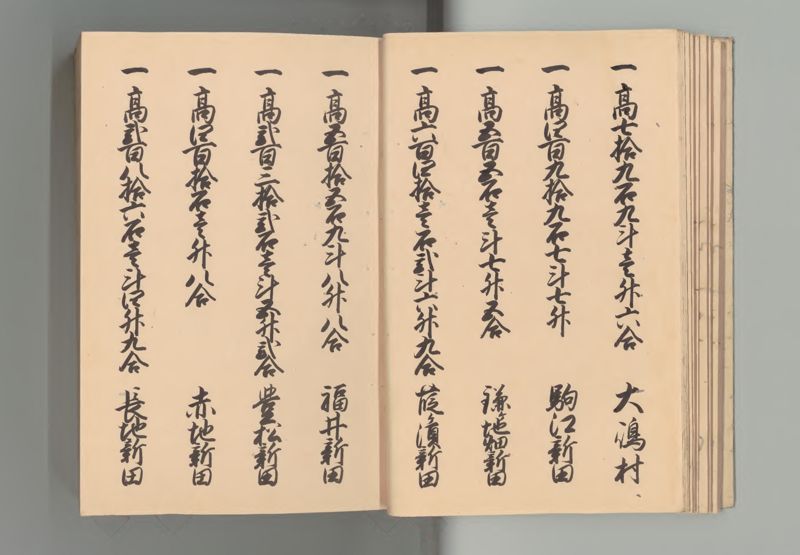 一 高七拾九石九斗壱升六合 大嶋村
一 高四百九拾九石七斗七升 駒江新田
一 高五百五石壱斗七升五合 鎌地新田
一 高六百四拾壱石弐斗六升九合 葭濱新田
一 高五百拾五石九斗八升八合 福井新田
一 高弐百三拾弐石壱斗五升弐合 豊松新田
一 高四百拾石壱升八合 赤地新田
一 高弐百八拾六石壱斗四升九合 長地新田